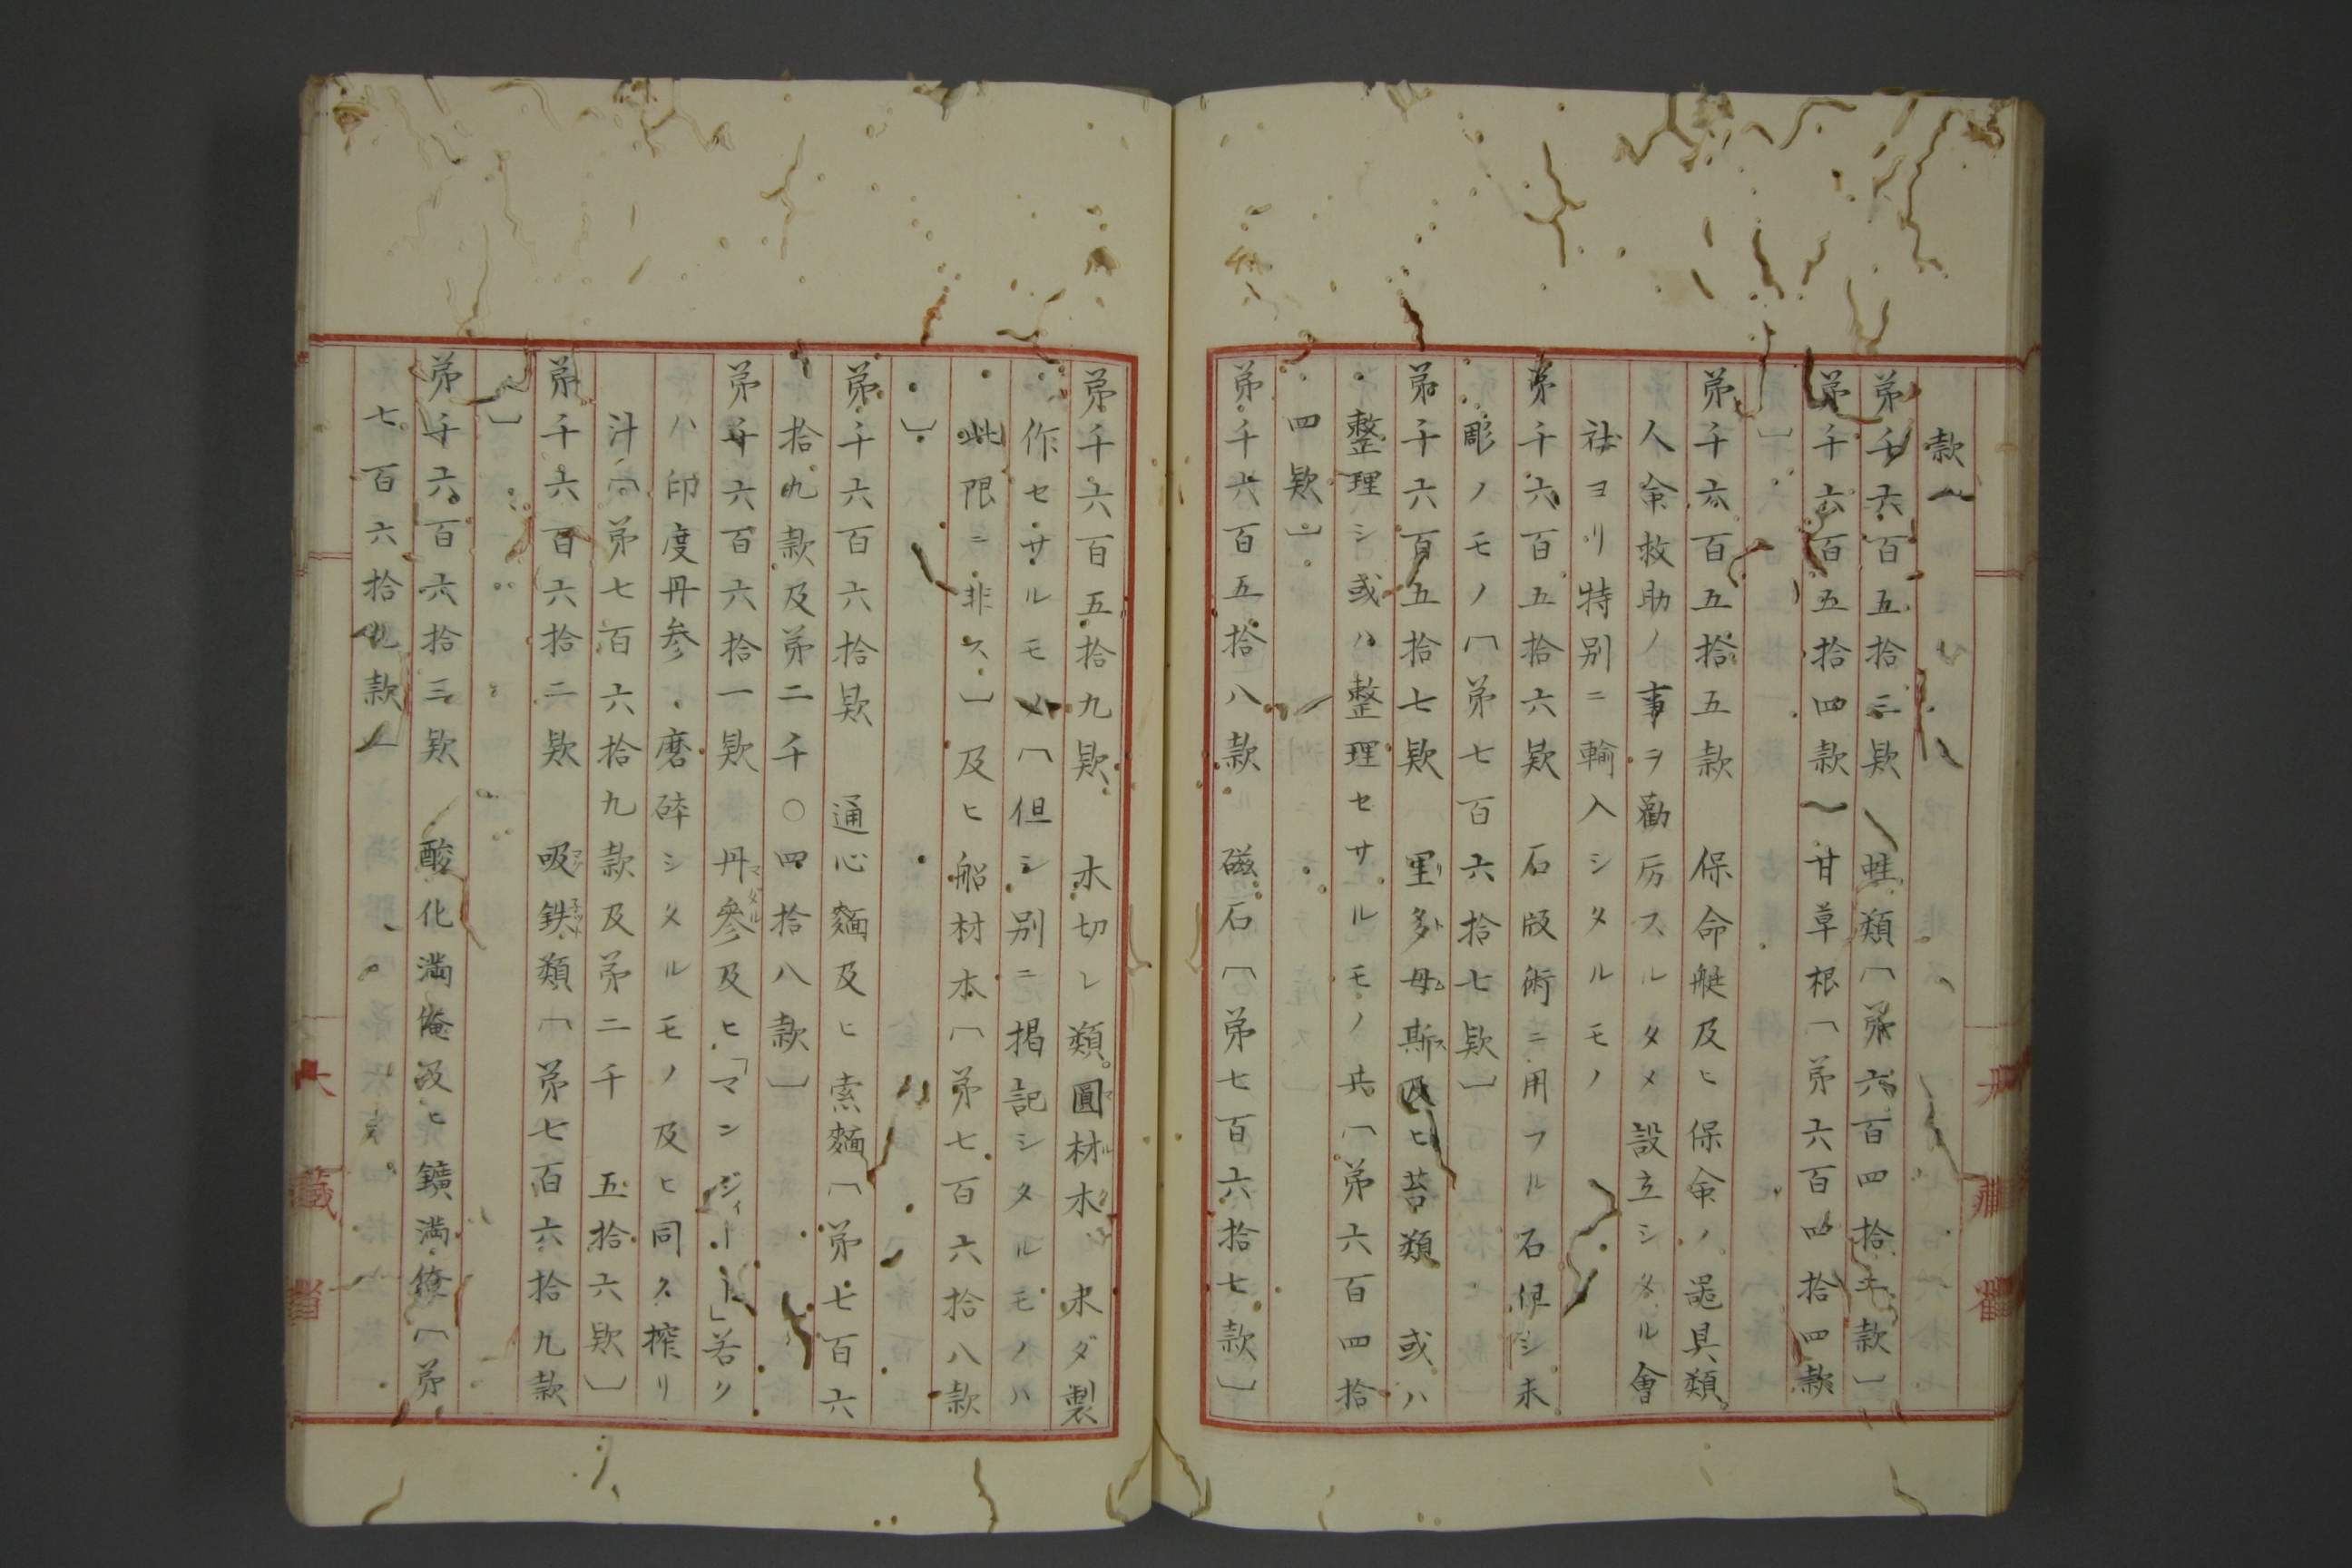 款〕
第千六百五拾三欵　蛙類〔第六百四拾　款〕
第千六百五拾四款　甘草根〔第六百四拾四款
〕
第千六百五拾五款　保命艇及ヒ保命ノ噐具類。
人命救助ノ事ヲ勸厉スルタメ設立シタル會
社ヨリ特别ニ輸入シタルモノ
第千六百五拾六欵　石版術ニ用フル石但シ未
彫ノモノ〔第七百六拾七欵〕
第千六百五拾七欵　里多母斯及ヒ苔類　或ハ
整理シ或ハ整理セサルモノ共〔第六百四拾
四欵〕
第千六百五拾八款　磁石〔第七百六拾七款〕
第千六百五拾九欵　木切レ類。圓材木　未ダ製
作セサルモノ〔但シ别ニ掲記シタルモノハ
此限ニ非ス〕及ヒ船材木〔第七百六拾八款
〕
第千六百六拾欵　通心麵及ヒ索麵〔第七百六
拾九款及第二千〇四拾八款〕
第千六百六拾一欵　丹參及ヒ「マンジィート」若ク
ハ印度丹参、磨碎シタルモノ及ヒ同ク搾リ
汁〔第七百六拾九款及第二千　五拾六欵〕
第千六百六拾二欵　吸鉄類〔第七百六拾九款
〕
第千六百六拾三欵　酸化満俺及ヒ鑛満俺〔第
七百六拾九款〕
大藏省